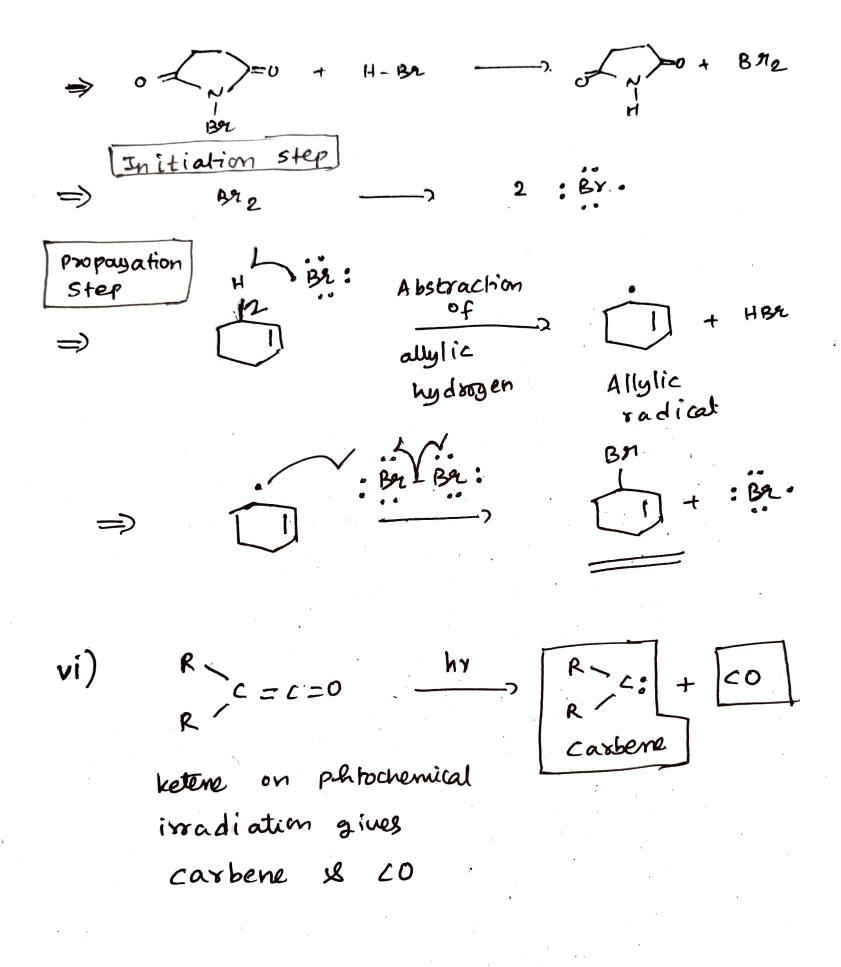 ⇒ O N Br =O + H-Br → O N H O + Br2
Initiation step
⇒ Br2 → 2 :Br.
Propagation
Step
H Br:
Abstraction
of
allylic
hydrogen
⇒ + HBr
Allylic
radical
Br
⇒ :Br-Br: → + :Br.
vi) R R C=C=O hν → R R C: + CO
Carbene
ketene on phtochemical
irradiation gives
carbene & CO